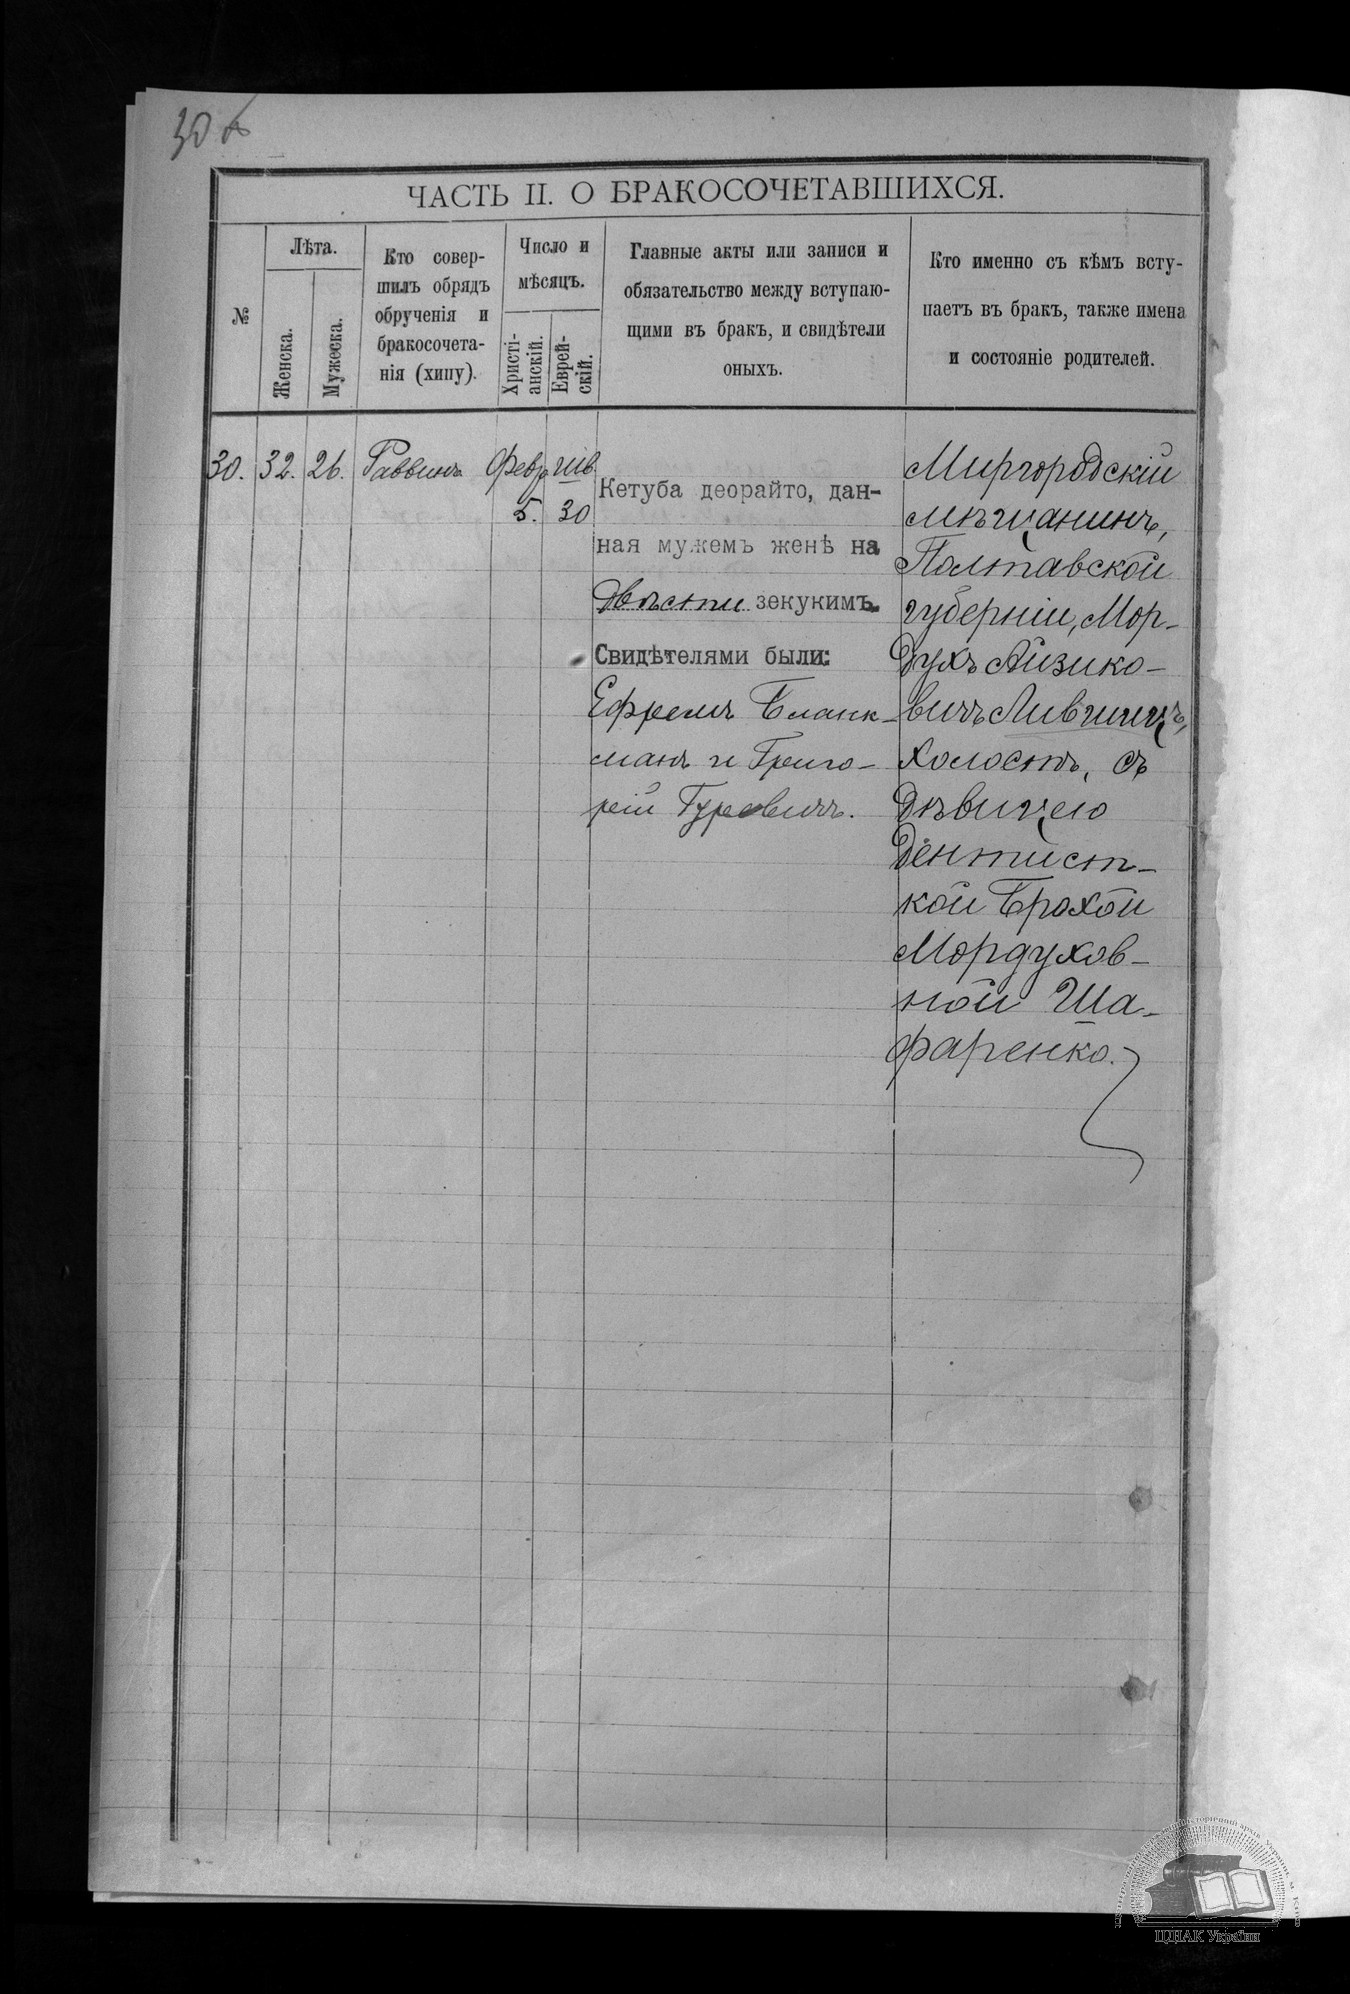 ЧАСТЬ II. О БРАКОСОЧЕТАВШИХСЯ.
№
Лѣта.
Женска.
Мужеска.
Кто совер-
шилъ обрядъ
обрученія и
бракосочета-
нія (хипу).
Число и
мѣсяцъ.
Христі-
анскій.
Еврей-
скій.
Главные акты или записи и
обязательство между вступаю-
щими въ бракъ, и свидѣтели
оныхъ.
Кто именно съ кѣмъ всту-
паетъ въ бракъ, также имена
и состояніе родителей.
30. 32. 26. Раввинъ Февр. Шв.
5. 30
Кетуба деорайто, дан-
ная мужемъ женѣ на
двѣсти зекукимъ.
Свидѣтелями были:
Ефремъ Бланк-
манъ и Григо-
рій Гуревичъ.
Миргородскій
мѣщанинъ,
Полтавской
губерніи, Мор-
духъ Айзико-
вичъ Лившицъ,
холостъ, съ
дѣвицею
дентист-
кой Брохой
Мордухов-
ной Ша-
фаренко.
ЦДІАК України